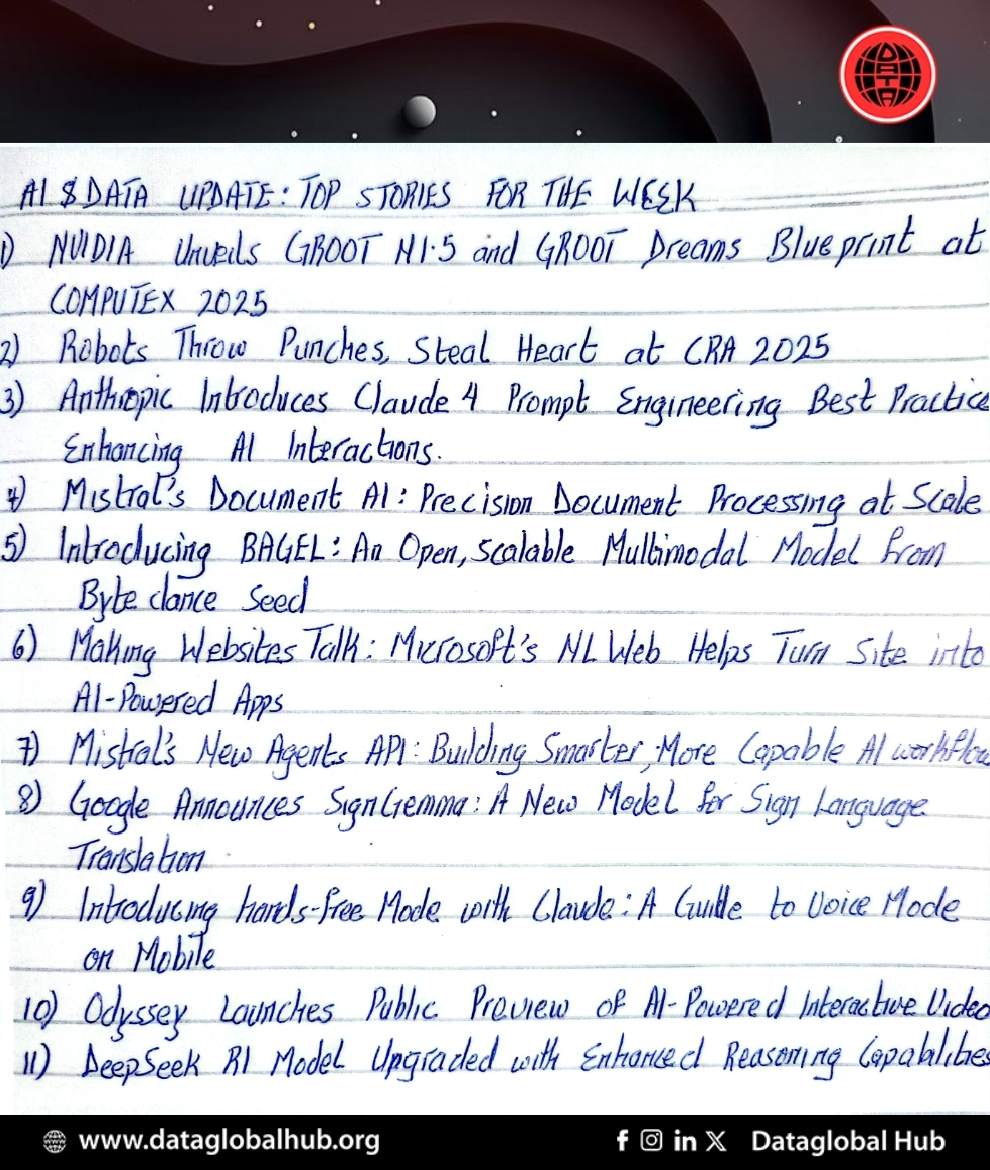 DATA
AI & DATA UPDATE: TOP STORIES FOR THE WEEK
1) NVIDIA Unveils GROOT N1.5 and GROOT Dreams Blueprint at
COMPUTEX 2025
2) Robots Throw Punches, Steal Heart at CRA 2025
3) Anthropic Introduces Claude 4 Prompt Engineering Best Practice
Enhancing AI Interactions.
4) Mistral's Document AI: Precision Document Processing at Scale
5) Introducing BAGEL: An Open, Scalable Multimodal Model from
Byte dance Seed
6) Making Websites Talk: Microsoft's NL Web Helps Turn Site into
AI-Powered Apps
7) Mistral's New Agents API: Building Smarter, More Capable AI workflow
8) Google Announces SignGemma: A New Model for Sign Language
Translation
9) Introducing hands-free Mode with Claude: A Guide to Voice Mode
on Mobile
10) Odyssey Launches Public Preview of AI-Powered Interactive Video
11) DeepSeek R1 Model Upgraded with Enhanced Reasoning Capabilities
www.dataglobalhub.org
Dataglobal Hub